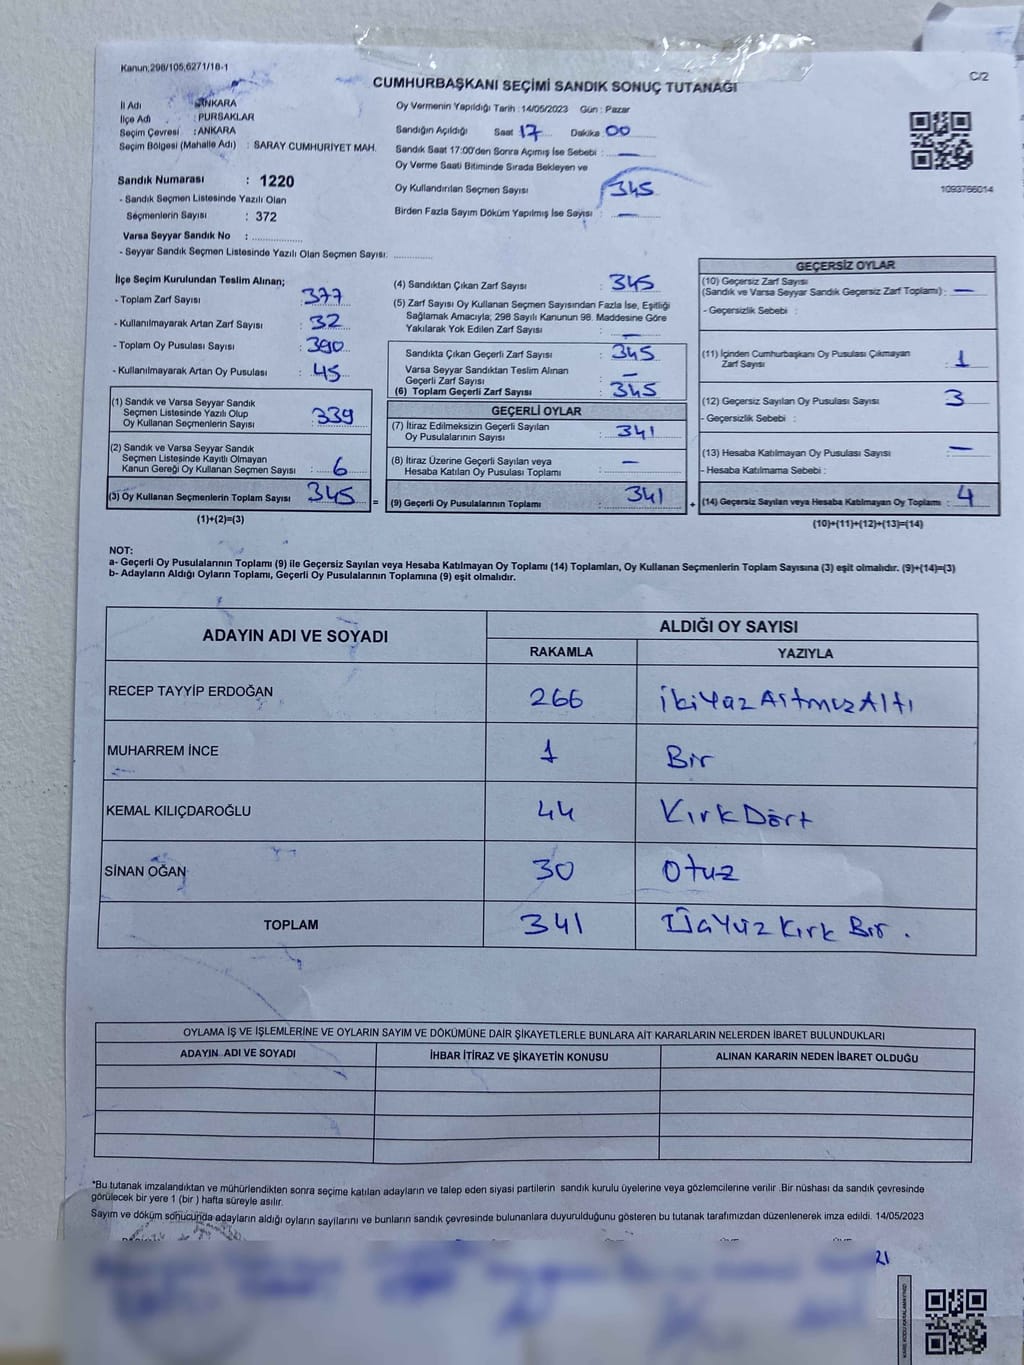 Kanun;298/105,6271/18-1
CUMHURBAŞKANI SEÇİMİ SANDIK SONUÇ TUTANAĞI
C/2
İl Adı : ANKARA
İlçe Adı : PURSAKLAR
Seçim Çevresi : ANKARA
Seçim Bölgesi (Mahalle Adı) : SARAY CUMHURİYET MAH.
Oy Vermenin Yapıldığı Tarih : 14/05/2023 Gün : Pazar
Sandığın Açıldığı Saat 17 Dakika 00
Sandık Saat 17:00'den Sonra Açımış İse Sebebi : —
Oy Verme Saati Bitiminde Sırada Bekleyen ve
Oy Kullandırılan Seçmen Sayısı : 345
Birden Fazla Sayım Döküm Yapılmış İse Sayısı : —
1093766014
Sandık Numarası : 1220
- Sandık Seçmen Listesinde Yazılı Olan
Seçmenlerin Sayısı : 372
Varsa Seyyar Sandık No :
- Seyyar Sandık Seçmen Listesinde Yazılı Olan Seçmen Sayısı:
İlçe Seçim Kurulundan Teslim Alınan;
- Toplam Zarf Sayısı : 377
- Kullanılmayarak Artan Zarf Sayısı : 32
- Toplam Oy Pusulası Sayısı : 390
- Kullanılmayarak Artan Oy Pusulası : 45
(1) Sandık ve Varsa Seyyar Sandık
Seçmen Listesinde Yazılı Olup
Oy Kullanan Seçmenlerin Sayısı : 339
(2) Sandık ve Varsa Seyyar Sandık
Seçmen Listesinde Kayıtlı Olmayan
Kanun Gereği Oy Kullanan Seçmen Sayısı : 6
(3) Oy Kullanan Seçmenlerin Toplam Sayısı : 345
(1)+(2)=(3)
(4) Sandıktan Çıkan Zarf Sayısı : 345
(5) Zarf Sayısı Oy Kullanan Seçmen Sayısından Fazla İse, Eşitliği
Sağlamak Amacıyla; 298 Sayılı Kanunun 98. Maddesine Göre
Yakılarak Yok Edilen Zarf Sayısı : —
Sandıkta Çıkan Geçerli Zarf Sayısı : 345
Varsa Seyyar Sandıktan Teslim Alınan
Geçerli Zarf Sayısı : —
(6) Toplam Geçerli Zarf Sayısı : 345
GEÇERLİ OYLAR
(7) İtiraz Edilmeksizin Geçerli Sayılan
Oy Pusulalarının Sayısı : 341
(8) İtiraz Üzerine Geçerli Sayılan veya
Hesaba Katılan Oy Pusulası Toplamı : —
= (9) Geçerli Oy Pusulalarının Toplamı : 341
GEÇERSİZ OYLAR
(10) Geçersiz Zarf Sayısı
(Sandık ve Varsa Seyyar Sandık Geçersiz Zarf Toplamı) : —
- Geçersizlik Sebebi :
(11) İçinden Cumhurbaşkanı Oy Pusulası Çıkmayan
Zarf Sayısı : 1
(12) Geçersiz Sayılan Oy Pusulası Sayısı : 3
- Geçersizlik Sebebi :
(13) Hesaba Katılmayan Oy Pusulası Sayısı : —
- Hesaba Katılmama Sebebi :
+ (14) Geçersiz Sayılan veya Hesaba Katılmayan Oy Toplamı : 4
(10)+(11)+(12)+(13)=(14)
NOT:
a- Geçerli Oy Pusulalarının Toplamı (9) ile Geçersiz Sayılan veya Hesaba Katılmayan Oy Toplamı (14) Toplamları, Oy Kullanan Seçmenlerin Toplam Sayısına (3) eşit olmalıdır. (9)+(14)=(3)
b- Adayların Aldığı Oyların Toplamı, Geçerli Oy Pusulalarının Toplamına (9) eşit olmalıdır.
ADAYIN ADI VE SOYADI
ALDIĞI OY SAYISI
RAKAMLA YAZIYLA
RECEP TAYYİP ERDOĞAN 266 ikiYüzAltmışAltı
MUHARREM İNCE 1 Bir
KEMAL KILIÇDAROĞLU 44 KırkDört
SİNAN OĞAN 30 Otuz
TOPLAM 341 ÜçYüz Kırk Bir.
OYLAMA İŞ VE İŞLEMLERİNE VE OYLARIN SAYIM VE DÖKÜMÜNE DAİR ŞİKAYETLERLE BUNLARA AİT KARARLARIN NELERDEN İBARET BULUNDUKLARI
ADAYIN ADI VE SOYADI İHBAR İTİRAZ VE ŞİKAYETİN KONUSU ALINAN KARARIN NEDEN İBARET OLDUĞU
*Bu tutanak imzalandıktan ve mühürlendikten sonra seçime katılan adayların ve talep eden siyasi partilerin sandık kurulu üyelerine veya gözlemcilerine verilir .Bir nüshası da sandık çevresinde
görülecek bir yere 1 (bir ) hafta süreyle asılır.
Sayım ve döküm sonucunda adayların aldığı oyların sayılarını ve bunların sandık çevresinde bulunanlara duyurulduğunu gösteren bu tutanak tarafımızdan düzenlenerek imza edildi. 14/05/2023
21